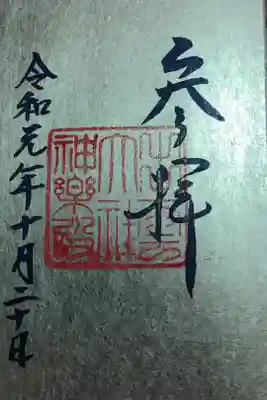 奉拝
出雲
大社
神楽殿
令和元年十月二十日